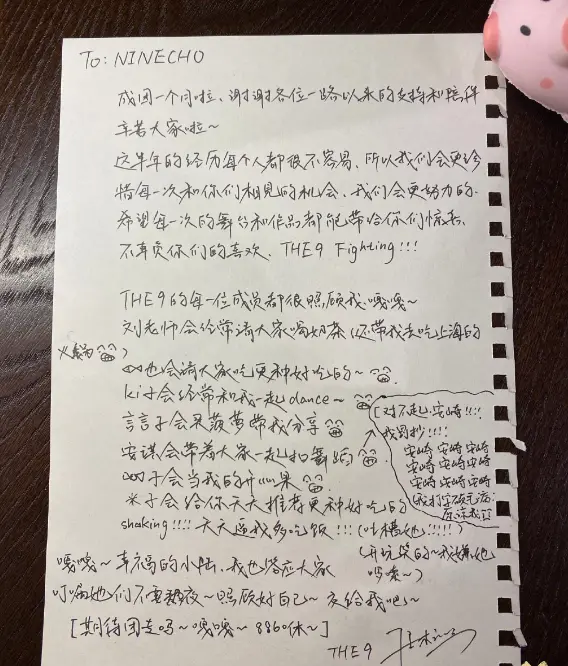 To: NINECHO
成团一个月啦、谢谢各位一路以来的支持和陪伴
辛苦大家啦~
这半年的经历每个人都很不容易、所以我们会更珍
惜每一次和你们相见的机会、我们会更努力的.
希望每一次的舞台和作品都能带给你们惊喜.
不辜负你们的喜欢、THE9 Fighting!!!
THE9的每一位成员都很照顾我、嘎嘎~
刘老师会经常请大家喝奶茶(还带我去吃上海的
火锅)
也会请大家吃更种好吃的~
ki子会经常和我一起dance~
言言子会果菠萝带我分享
安谋会带着大家一起扣舞蹈
子会当我的开心果
米子会给你天天推荐更种好吃的
shaking!!!! 天天逼我多吃饭!!!(吐槽她!!!!!)
(开玩笑的~我嫌她
[对不起、安崎!!!!
我罚抄!!!:
安崎 安崎 安崎
安崎 安崎 安崎
安崎 安崎 安崎
(我打字碩元病
原谅我
嘎嘎~ 幸福的小陆、我也答应大家
叮嘱她们不要熬夜~照顾好自己~ 交给我吧~
[期待团走吗~嘎嘎~8860休~]
THE9